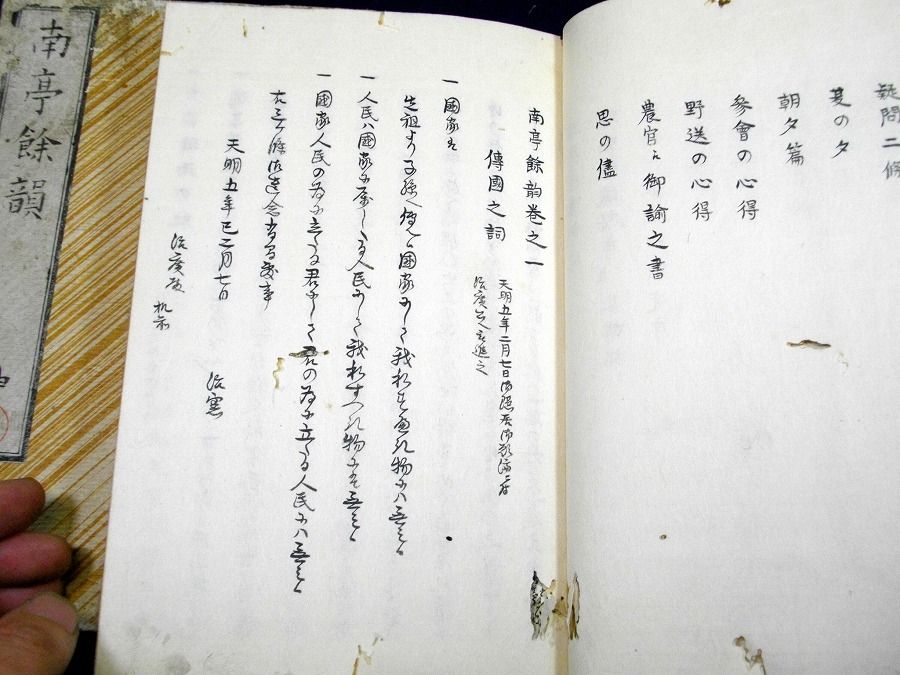 疑問二條
夏の夕
朝夕篇
參會の心得
野送の心得
農官に御諭之書
思の儘
南亭餘韵卷之一
傳國之詞
天明五年二月七日御隠居御願済
治廣公進之
一國家は
先祖より子孫へ傳候國家にして我私すへき物にハ無之候
一人民ハ國家に属したる人民にして我私すへき物には無之候
一國家人民の為に立たる君にして君の為に立たる人民にハ無之候
右三條御遺念有間敷事
天明五年巳二月七日
治憲
治廣殿
机前
南亭餘韻